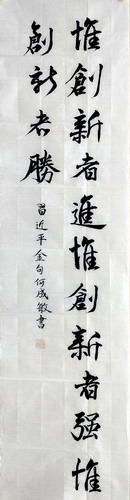 惟創新者進惟創新者强惟
創新者勝
習近平金句何成敏書